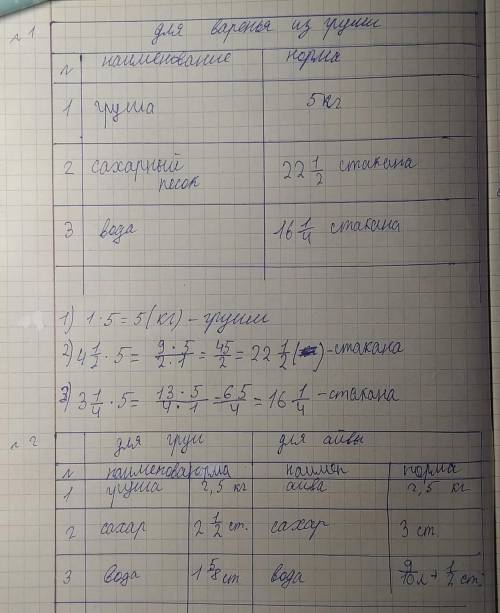 №1 для варенья из груши
№ наименование норма
1 груша 5 кг
2 сахарный песок 22 1/2 стакана
3 вода 16 1/4 стакана
1) 1·5=5(кг) – груши
2) 4 1/2 · 5 = 9·5/2·1 = 45/2 = 22 1/2 – стакана
3) 3 1/4 · 5 = 13·5/4·1 = 65/4 = 16 1/4 – стакана
№2 для груш для айвы
№ наименова норма наимен норма
1 груша 2,5 кг айва 2,5 кг
2 сахар 2 1/2 ст. сахар 3 ст.
3 вода 1 5/8 ст вода 9/10 л + 1/2 ст